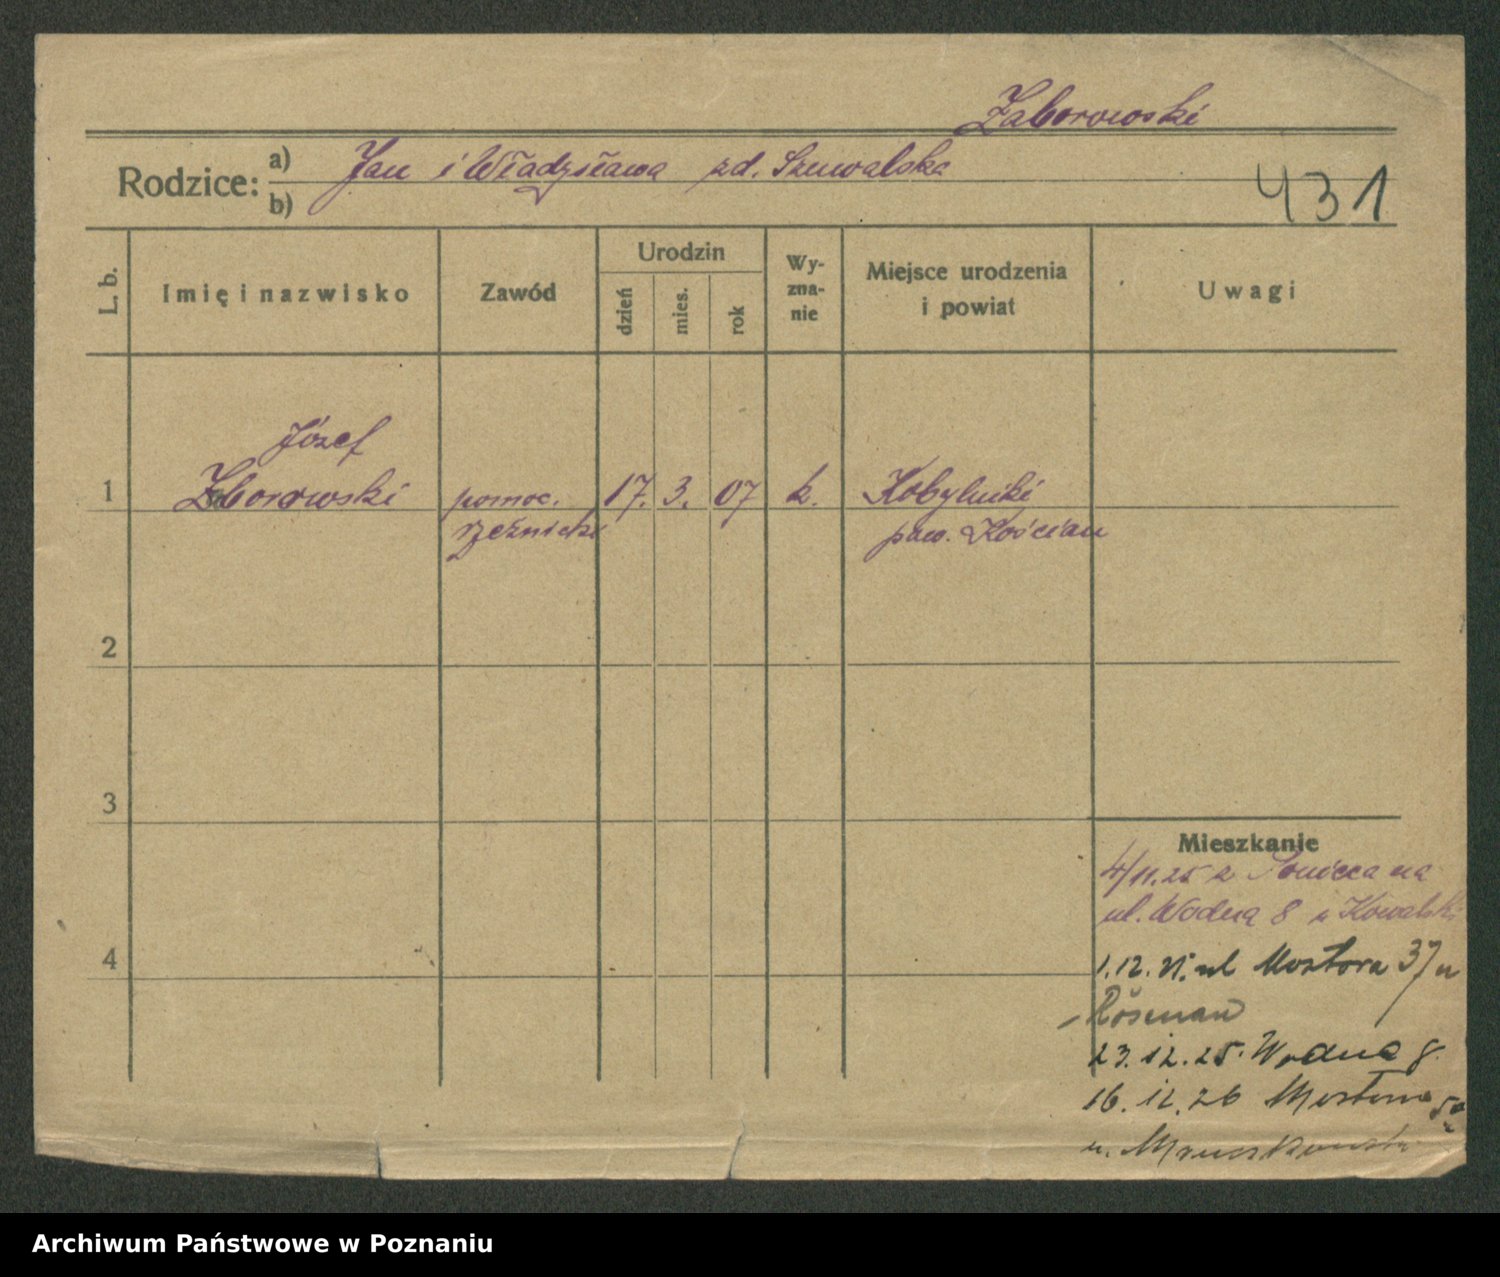 Zaborowski
Rodzice: a) Jan i Władzisława zd. Szuwalska
b)
431
L. b.
Imię i nazwisko
Zawód
Urodzin
dzień
mies.
rok
Wy-
zna-
nie
Miejsce urodzenia
i powiat
Uwagi
Józef
1 Zborowski pomoc. 17. 3. 07 k. Kobylniki
rzeźnicki pow. Kościan
2
3
Mieszkanie
4/11.25 z Poniecca na
ul. Wodną 8 u Kowalski
4
1.12. 25. ul Mostowa 37 u
Rösenau
23.12.25. Wodna 8.
16.12.26 Mostowa 5a
u.
Archiwum Państwowe w Poznaniu